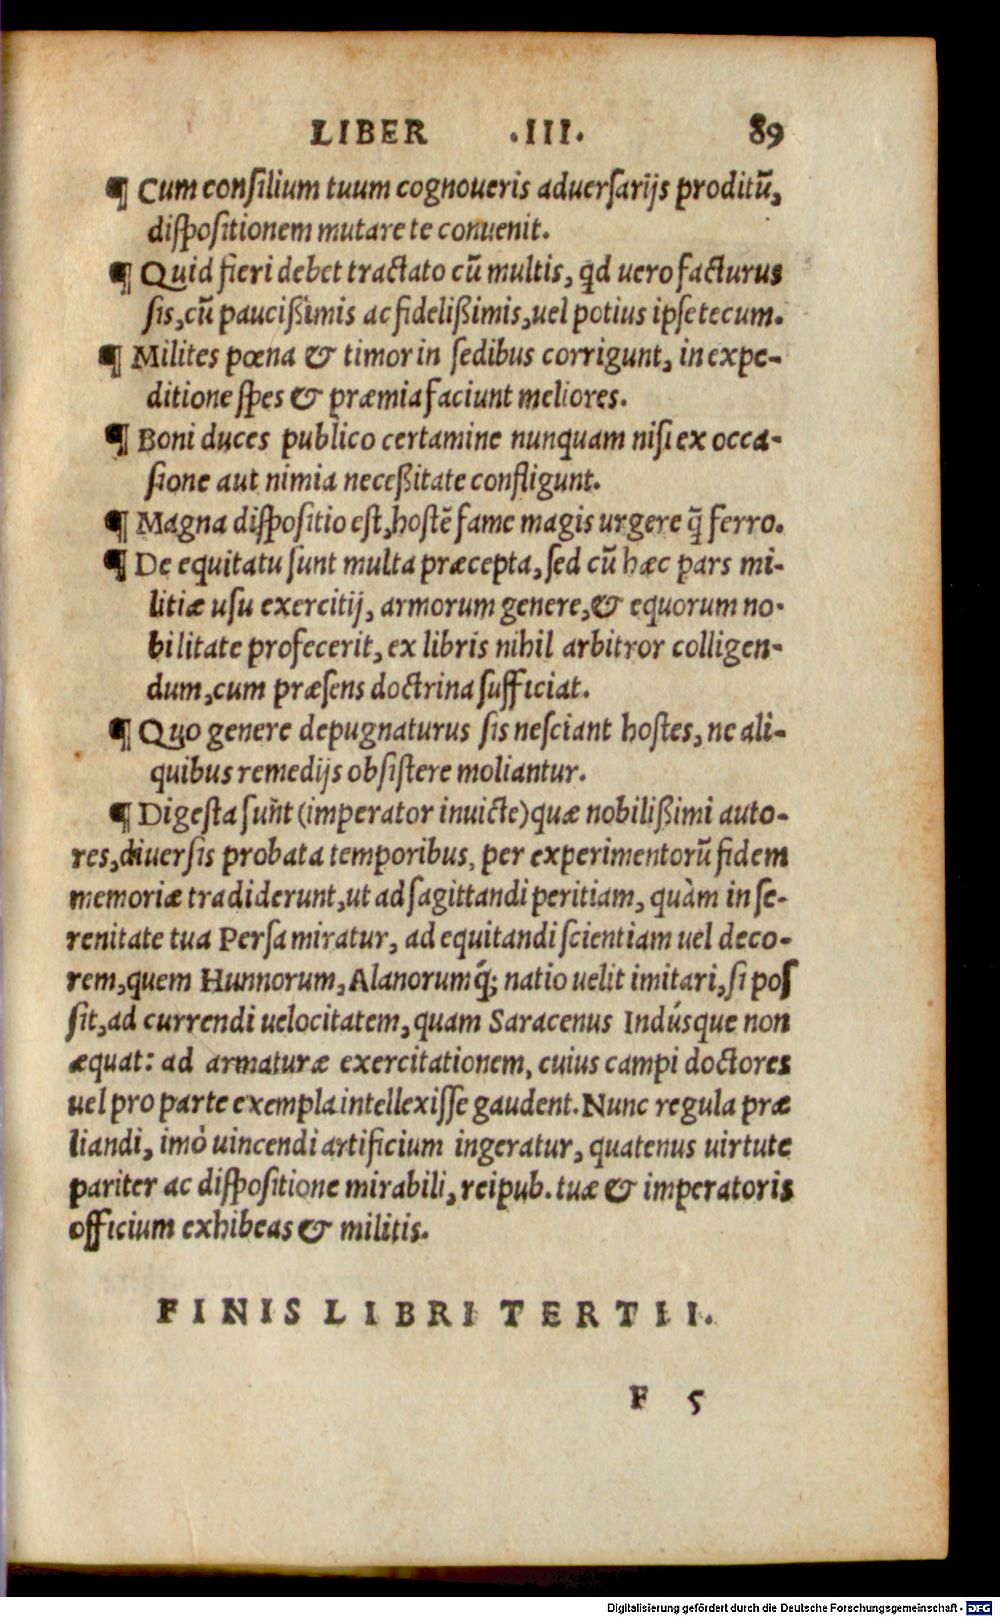 LIBER .III. 89
¶ Cum consilium tuum cognoueris aduersarijs proditū,
dispositionem mutare te conuenit.
¶ Quid fieri debet tractato cū multis, qd uero facturus
sis, cū paucißimis ac fidelißimis, uel potius ipse tecum.
¶ Milites pœna & timor in sedibus corrigunt, in expe-
ditione spes & præmia faciunt meliores.
¶ Boni duces publico certamine nunquam nisi ex occa-
sione aut nimia neceßitate confligunt.
¶ Magna dispositio est, hostē fame magis urgere q̄ ferro.
¶ De equitatu sunt multa præcepta, sed cū hæc pars mi-
litiæ usu exercitij, armorum genere, & equorum no-
bilitate profecerit, ex libris nihil arbitror colligen-
dum, cum præsens doctrina sufficiat.
¶ Quo genere depugnaturus sis nesciant hostes, ne ali-
quibus remedijs obsistere moliantur.
¶ Digesta sunt (imperator inuicte) quæ nobilißimi auto-
res, diuersis probata temporibus, per experimentorū fidem
memoriæ tradiderunt, ut ad sagittandi peritiam, quàm in se-
renitate tua Persa miratur, ad equitandi scientiam uel deco-
rem, quem Hunnorum, Alanorumq́; natio uelit imitari, si pos
sit, ad currendi uelocitatem, quam Saracenus Indúsque non
æquat: ad armaturæ exercitationem, cuius campi doctores
uel pro parte exempla intellexisse gaudent. Nunc regula præ
liandi, imò uincendi artificium ingeratur, quatenus uirtute
pariter ac dispositione mirabili, reipub. tuæ & imperatoris
officium exhibeas & militis.
FINIS LIBRI TERTII.
F 5
Digitalisierung gefördert durch die Deutsche Forschungsgemeinschaft - DFG